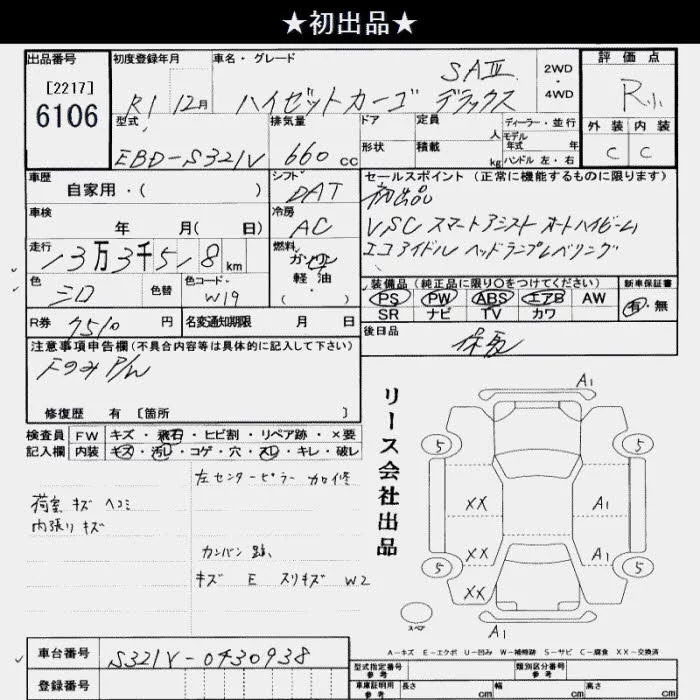 ★初出品★
出品番号
[2217]
6106
初度登録年月
R1 12月
車名・グレード
SAⅢ
ハイゼットカーゴ デラックス
2WD
・
4WD
評価点
R小
外装 内装
C C
型式
EBD-S321V
排気量
660 cc
ドア
形状
定員
人
積載
kg
ディーラー・並行
モデル
年式 年
ハンドル 左・右
車歴
自家用・( )
シフト
DAT
セールスポイント (正常に機能するものに限ります)
初出品
VSC スマートアシスト オートハイビーム
エコアイドル ヘッドランプレベリング
車検
年 月( 日)
冷房
AC
走行
13万3千518 km
燃料
ガソリン
軽油
・( )
色
シロ
色替
色コード・
W19
装備品 (純正品に限り○をつけてください)
PS PW ABS エアB AW
SR ナビ TV カワ
新車保証書
有・無
R券
7510 円
名変通知期限 月 日
後日品
保取
注意事項申告欄 (不具合内容等は具体的に記入して下さい)
Fのみ P/W
修復歴 有 [箇所 ]
検査員
記入欄
FW キズ・飛石・ヒビ割・リペア跡・×要
内装 キズ・汚レ・コゲ・穴・スレ・キレ・破レ
左センターピラー 加修
荷室 キズ ヘコミ
内張り キズ
カンバン 跡、
キズ E スリキズ W2
リース会社出品
A1
5 5
XX A1
XX A1
5 5
XX
スペア
A1
A-キズ E-エクボ U-凹み W-補修跡 S-サビ C-腐食 XX-交換済
車台番号
S321V-0430938
登録番号
型式指定番号
参考
類別区分番号
参考
車庫証明用
参考
長さ cm 幅 cm 高さ cm